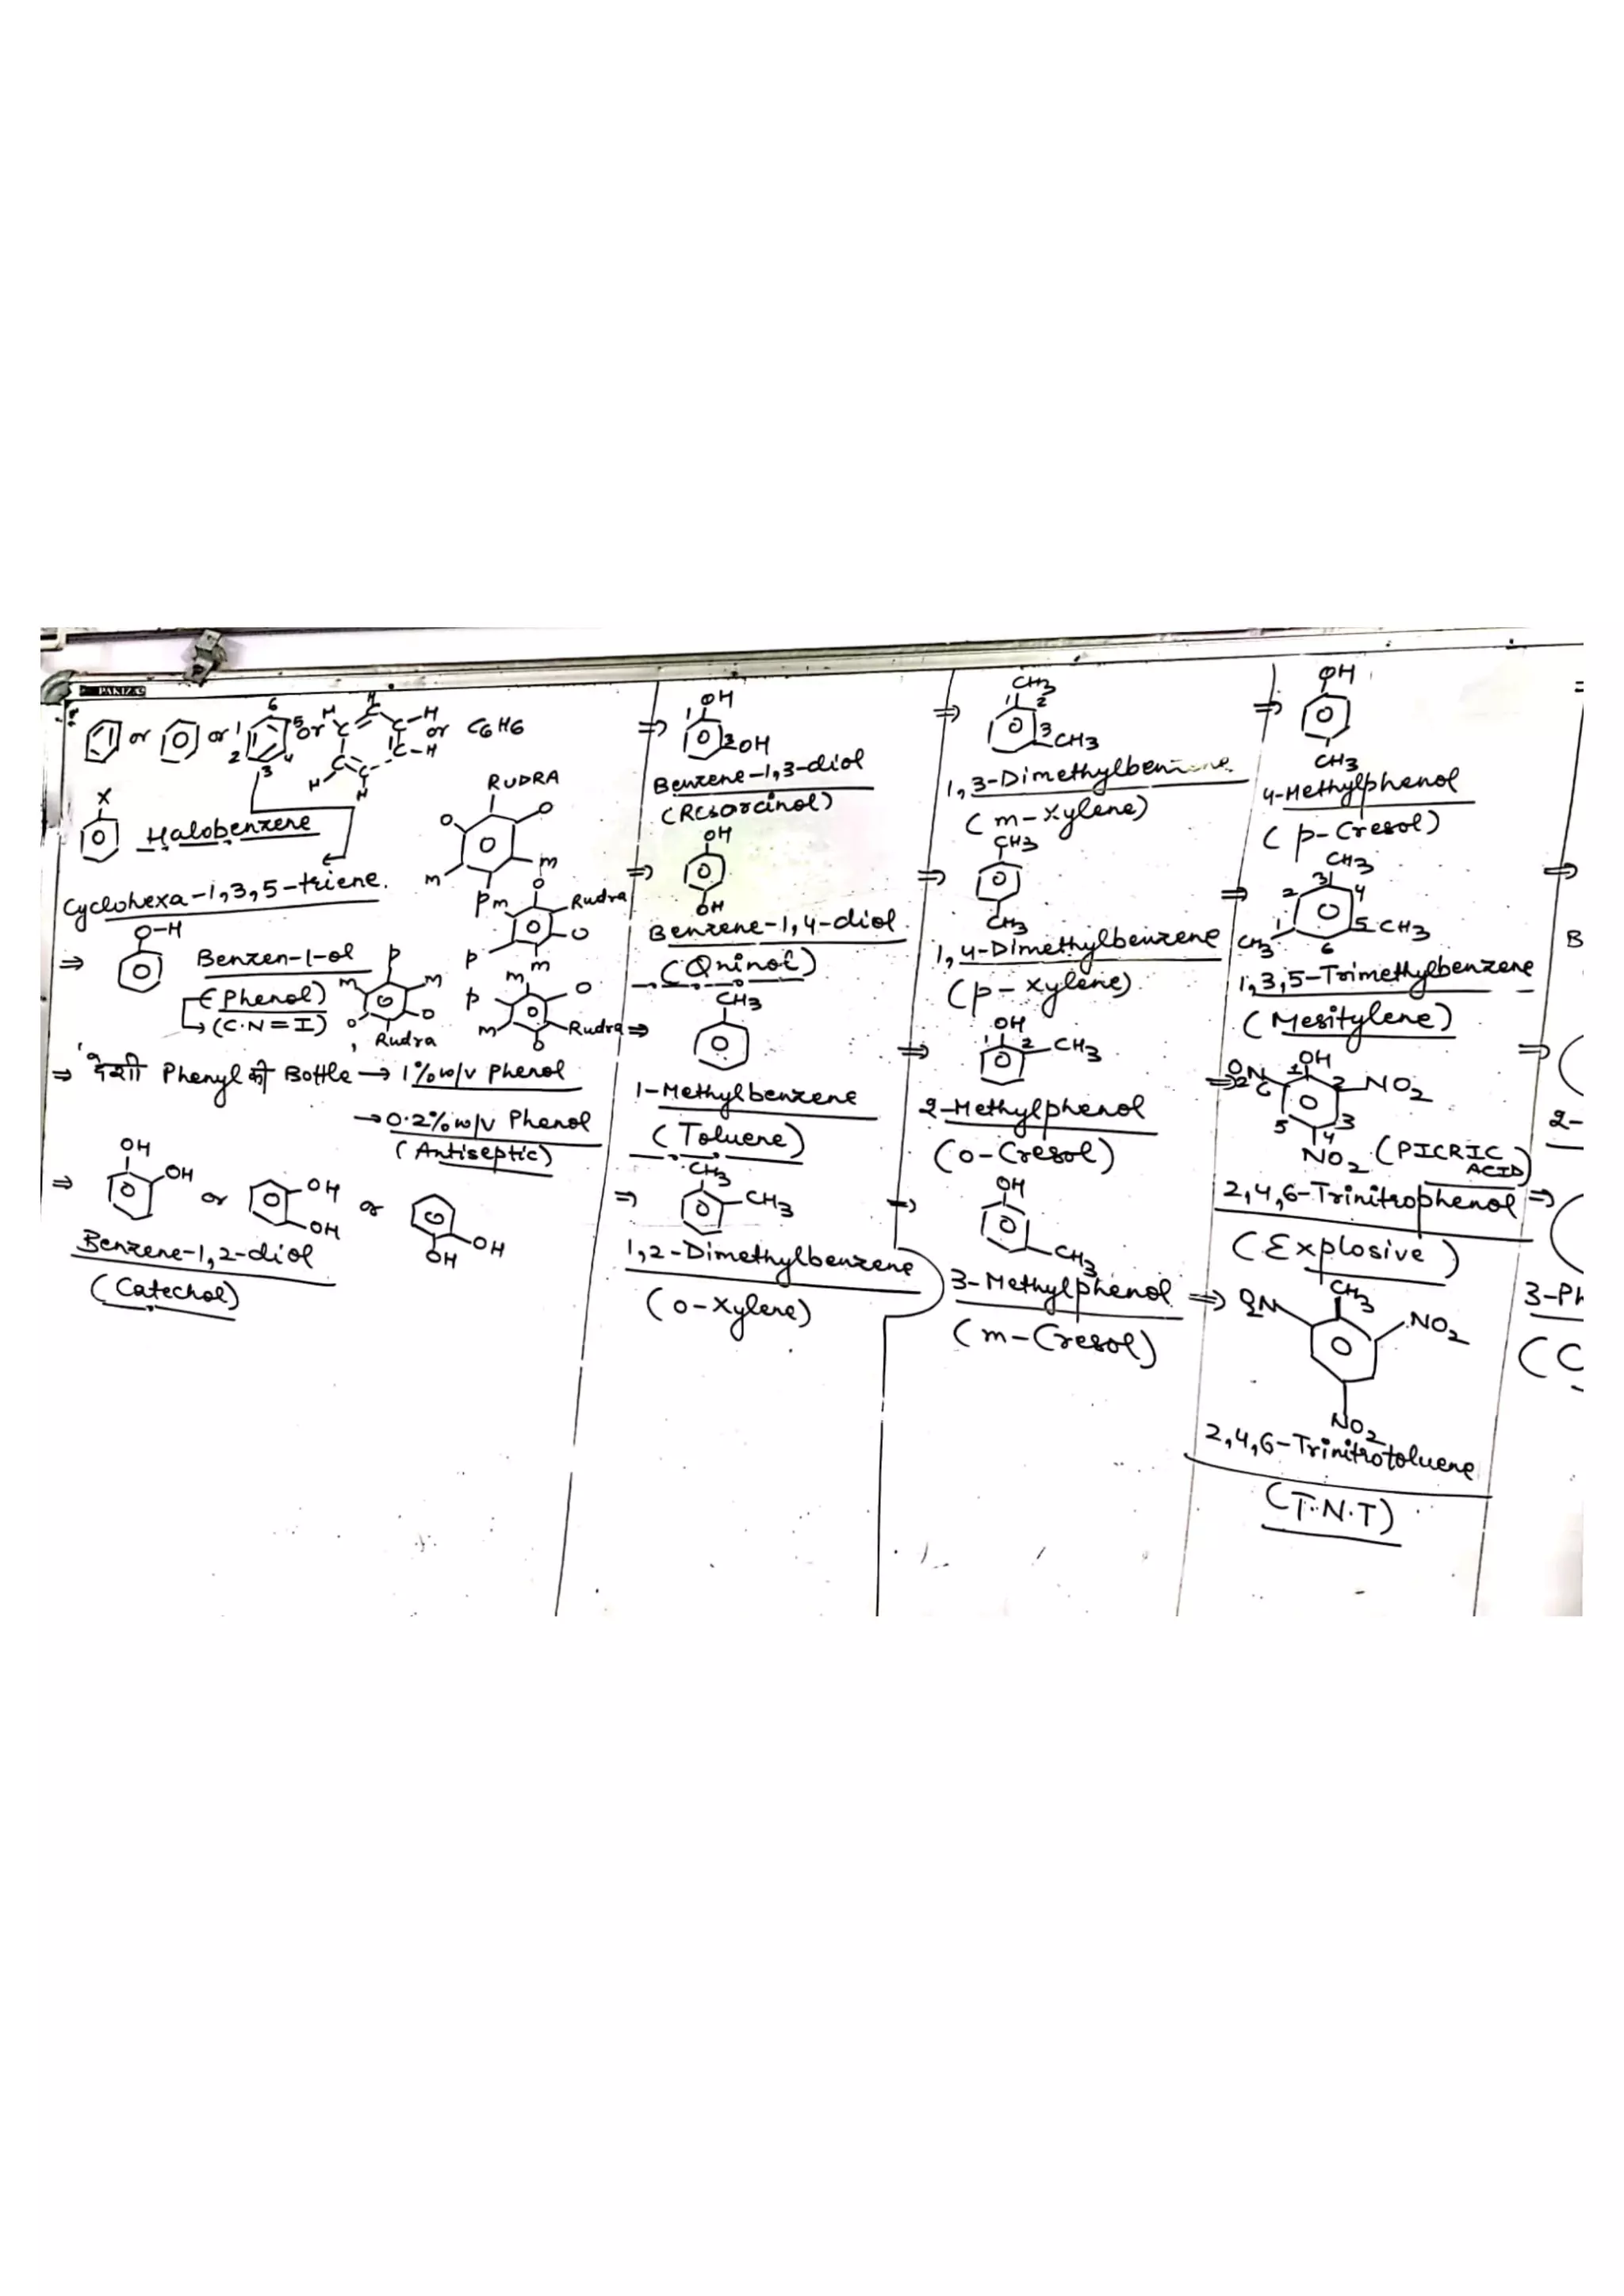 PAKIZA
6
or or 1 5 or H H C C C-H or C6H6
2 3 4 C C C-H
H H
X
Halobenzene
RUDRA
o o
m m
p
Cyclohexa-1,3,5-triene.
o
m Rudra
o
p m
O-H
⇒ Benzen-1-ol
(Phenol)
↳ (C.N = I)
p
m m
o o
Rudra
m
p o
m Rudra
o
⇒ देशी Phenyl की Bottle → 1% w/v phenol
→ 0.2% w/v Phenol
(Antiseptic)
⇒ OH OH or OH OH or OH OH
Benzene-1,2-diol
(Catechol)
⇒ 1 OH
3 OH
Benzene-1,3-diol
(Resorcinol)
⇒ OH
OH
Benzene-1,4-diol
(Quinol)
⇒ CH3
1-Methylbenzene
(Toluene)
⇒ CH3
CH3
1,2-Dimethylbenzene
(o-Xylene)
⇒ CH3
1 2
3 CH3
1,3-Dimethylbenzene
(m-Xylene)
⇒ CH3
CH3
1,4-Dimethylbenzene
(p-Xylene)
⇒ OH
1 2 CH3
2-Methylphenol
(o-Cresol)
⇒ OH
CH3
3-Methylphenol
(m-Cresol)
⇒ OH
CH3
4-Methylphenol
(p-Cresol)
⇒ CH3
2 3 4
CH3 1 5 CH3
6
1,3,5-Trimethylbenzene
(Mesitylene)
⇒ OH
O2N 6 1 2 NO2
5 3
4
NO2 (PICRIC ACID)
2,4,6-Trinitrophenol
(Explosive)
⇒ CH3
O2N NO2
NO2
2,4,6-Trinitrotoluene
(T.N.T)
⇒
B
⇒
2-
⇒
3-Ph
(C